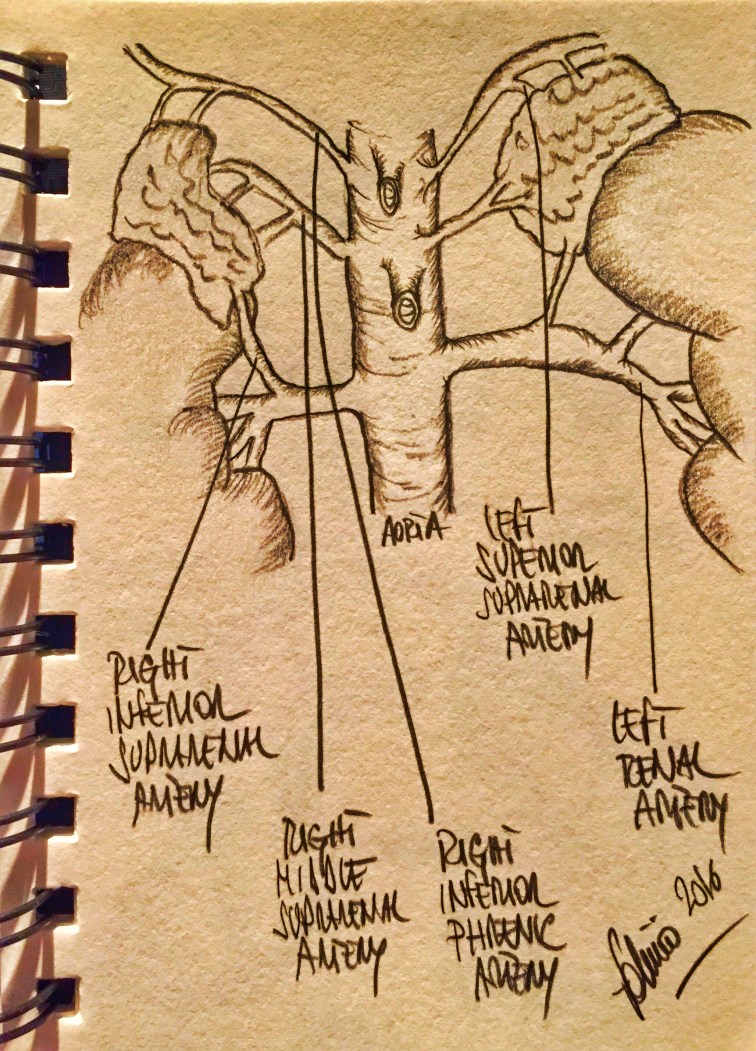 AORTA
LEFT
SUPERIOR
SUPRARENAL
ARTERY
RIGHT
INFERIOR
SUPRARENAL
ARTERY
LEFT
RENAL
ARTERY
RIGHT
MIDDLE
SUPRARENAL
ARTERY
RIGHT
INFERIOR
PHRENIC
ARTERY
2016